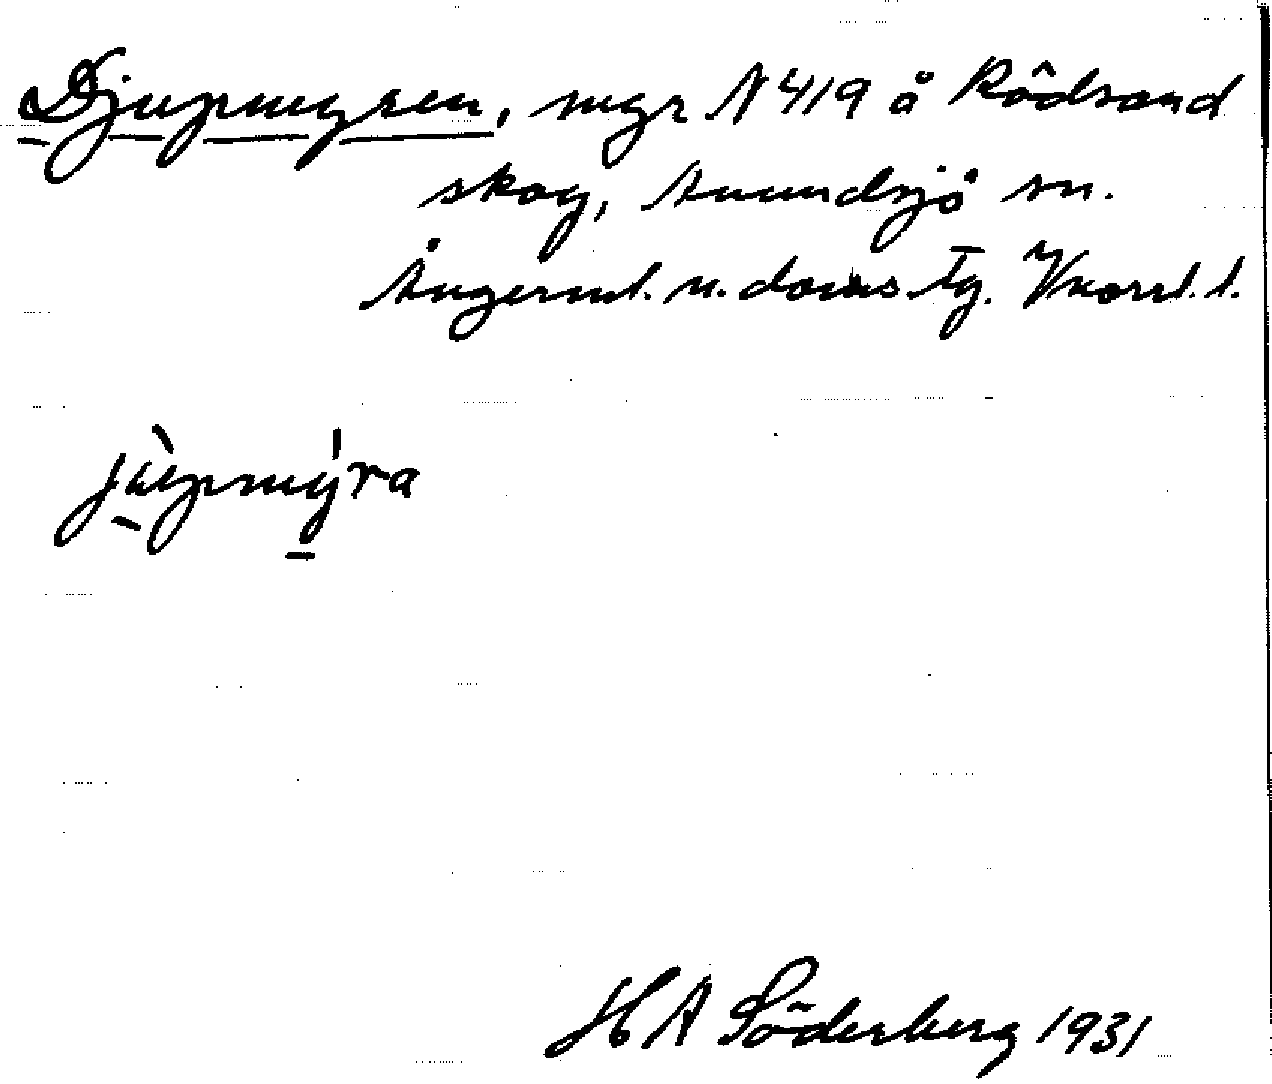 Djupmyren, myr N 419 å Rödsand
skog, Anundsjö sn.
Ångerml. n. doms. Tg. Vnorrl. l.
jùpmýra
H A Söderberg 1931